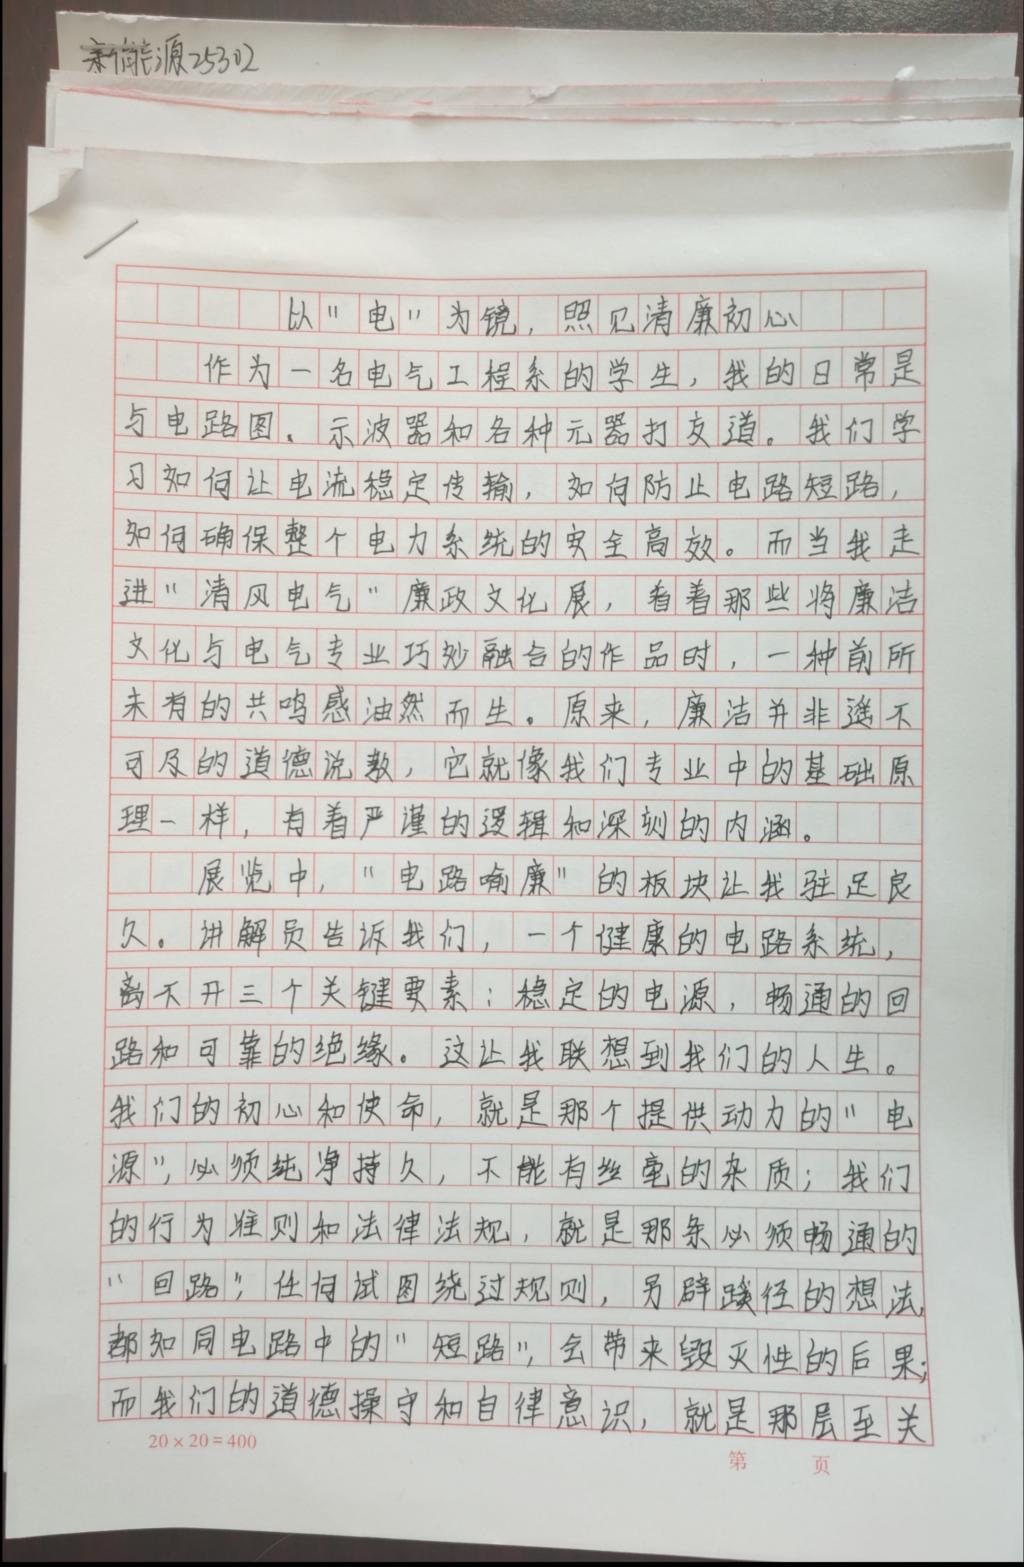 新能源25302
以"电"为镜，照见清廉初心
作为一名电气工程系的学生，我的日常是
与电路图、示波器和各种元器打交道。我们学
习如何让电流稳定传输，如何防止电路短路，
如何确保整个电力系统的安全高效。而当我走
进"清风电气"廉政文化展，看着那些将廉洁
文化与电气专业巧妙融合的作品时，一种前所
未有的共鸣感油然而生。原来，廉洁并非遥不
可及的道德说教，它就像我们专业中的基础原
理一样，有着严谨的逻辑和深刻的内涵。
展览中，"电路喻廉"的板块让我驻足良
久。讲解员告诉我们，一个健康的电路系统，
离不开三个关键要素：稳定的电源，畅通的回
路和可靠的绝缘。这让我联想到我们的人生。
我们的初心和使命，就是那个提供动力的"电
源"，必须纯净持久，不能有丝毫的杂质；我们
的行为准则和法律法规，就是那条必须畅通的
"回路"，任何试图绕过规则，另辟蹊径的想法，
都如同电路中的"短路"，会带来毁灭性的后果；
而我们的道德操守和自律意识，就是那层至关
20×20=400
第 页